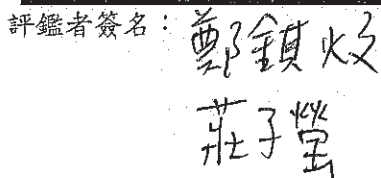 評鑑者簽名：鄭鎮炆
莊子瑩